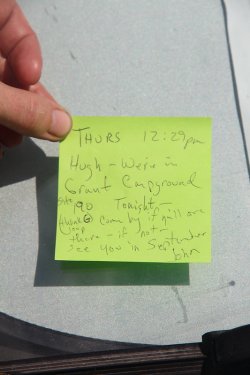 THURS 12:29pm
Hugh - We're in
Grant Campground
Site 190 Tonight -
come by if y'all are
there - if not -
see you in September
John